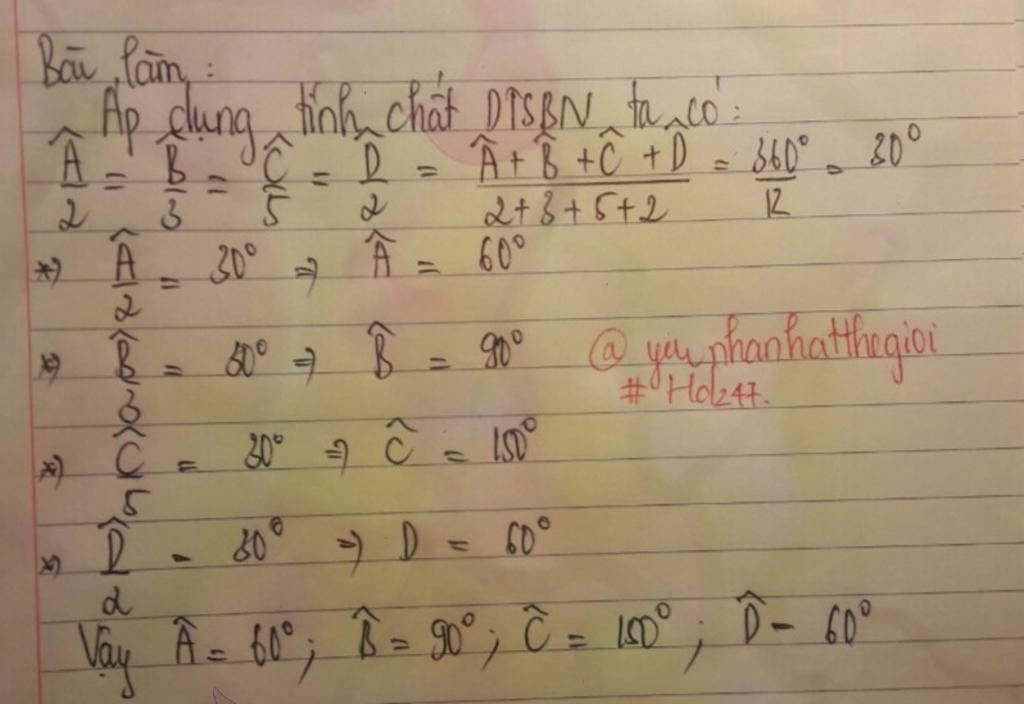 Bài làm :
Áp dụng tính chất DTSBN ta có :
Â/2 = B̂/3 = Ĉ/5 = D̂/2 = (Â + B̂ + Ĉ + D̂)/(2+3+5+2) = 360°/12 = 30°
*) Â/2 = 30° => Â = 60°
*) B̂/3 = 30° => B̂ = 90°
@yeuphanhatthegioi
# Hd247.
*) Ĉ/5 = 30° => Ĉ = 150°
*) D̂/2 = 30° => D = 60°
Vậy Â = 60° ; B̂ = 90° ; Ĉ = 150° ; D̂ = 60°